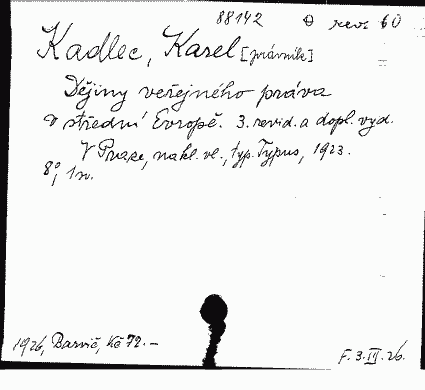 88142 rev. 60
Kadlec, Karel [právník]
Dějiny veřejného práva
v střední Evropě. 3. revid. a dopl. vyd.
V Praze, nakl. vl., typ. Typus, 1923.
8°, 1 sv.
1926, Barvič, Kč 72.-
F. 3. III. 26.